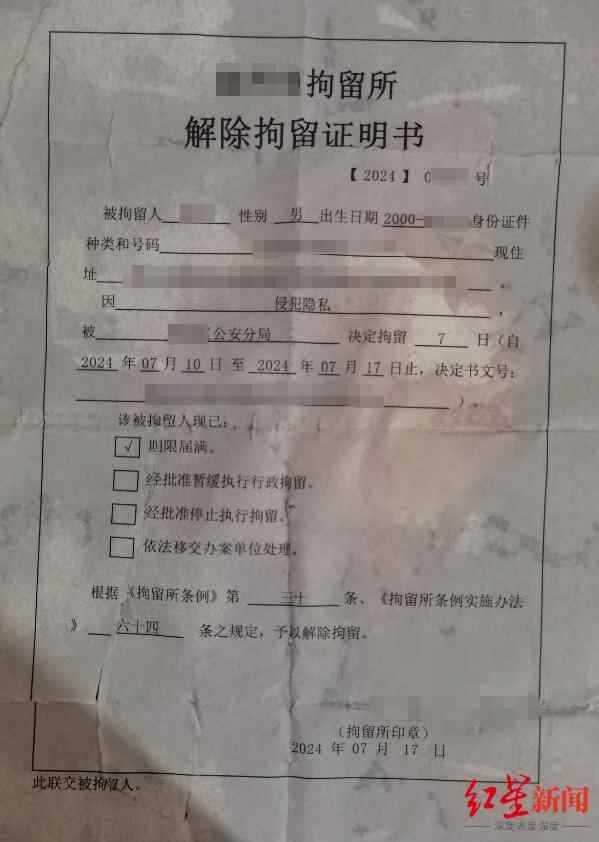 拘留所
解除拘留证明书
【2024】0 号
被拘留人 性别 男 出生日期 2000- 身份证件
种类和号码 现住
址 。
因 侵犯隐私 ，
被 公安分局 决定拘留 7 日（自
2024 年 07 月 10 日 至 2024 年 07 月 17 日止，决定书文号：
）。
该被拘留人现已：
√ 期限届满。
经批准暂缓执行行政拘留。
经批准停止执行拘留。
依法移交办案单位处理。
根据《拘留所条例》第 三十 条、《拘留所条例实施办法
》 六十四 条之规定，予以解除拘留。
（拘留所印章）
2024 年 07 月 17 日
此联交被拘留人。
红星新闻
深度 态度 温度